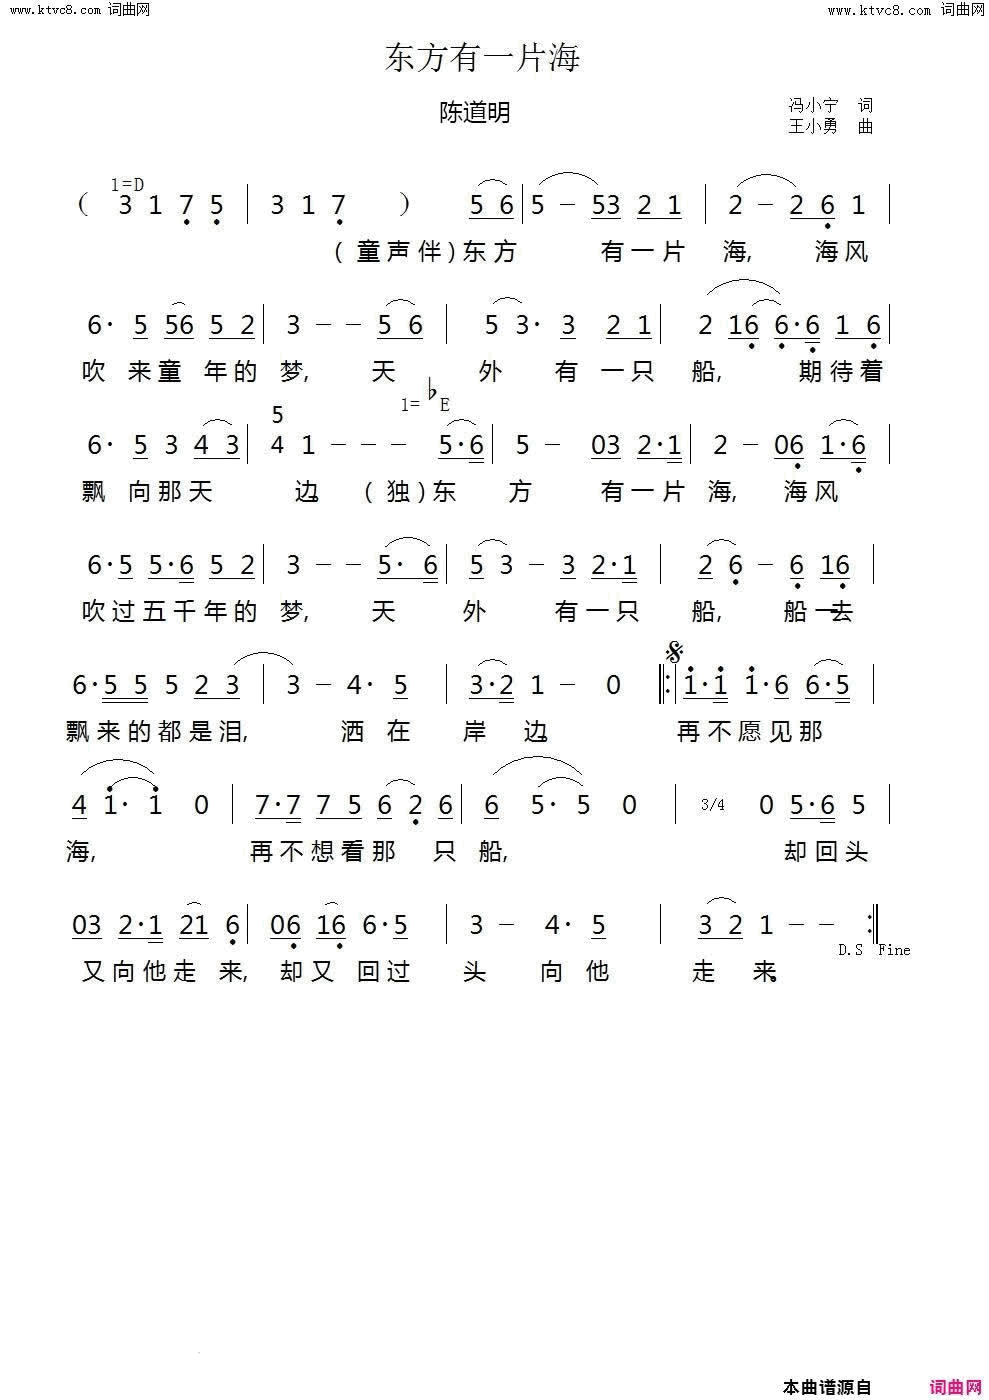 www.ktvc8.com 词曲网 www.ktvc8.com 词曲网
东方有一片海
陈道明
冯小宁 词
王小勇 曲
1=D
( 3 1 7 5 | 3 1 7 ) 5 6 | 5 - 53 2 1 | 2 - 2 6 1 |
(童声伴)东方 有一片 海, 海风
6· 5 56 5 2 | 3 - - 5 6 | 5 3· 3 2 1 | 2 16 6·6 1 6 |
吹 来童 年的 梦, 天 外 有 一只 船, 期待着
1= ♭E
6· 5 3 4 3 | 5 4 1 - - - 5·6 | 5 - 03 2·1 | 2 - 06 1·6 |
飘 向那天 边。 (独)东 方 有一片 海, 海风
6·5 5·6 5 2 | 3 - - 5· 6 | 5 3 - 3 2·1 | 2 6 - 6 16 |
吹过五千年的 梦, 天 外 有一只 船, 船一去
6·5 5 5 2 3 | 3 - 4· 5 | 3·2 1 - 0 ‖: 1·1 1·6 6·5 |
飘来的都是泪, 洒 在 岸 边。 再不愿见那
4 1· 1 0 | 7·7 7 5 6 2 6 | 6 5· 5 0 | 3/4 0 5·6 5 |
海, 再不想看那 只 船, 却回头
03 2·1 21 6 | 06 16 6·5 | 3 - 4· 5 | 3 2 1 - - :‖
D.S Fine
又向他走 来, 却又 回过 头 向 他 走 来。
本曲谱源自 词曲网